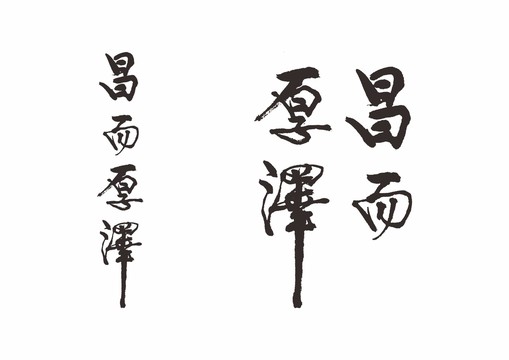 昌而厚澤
昌而
厚澤